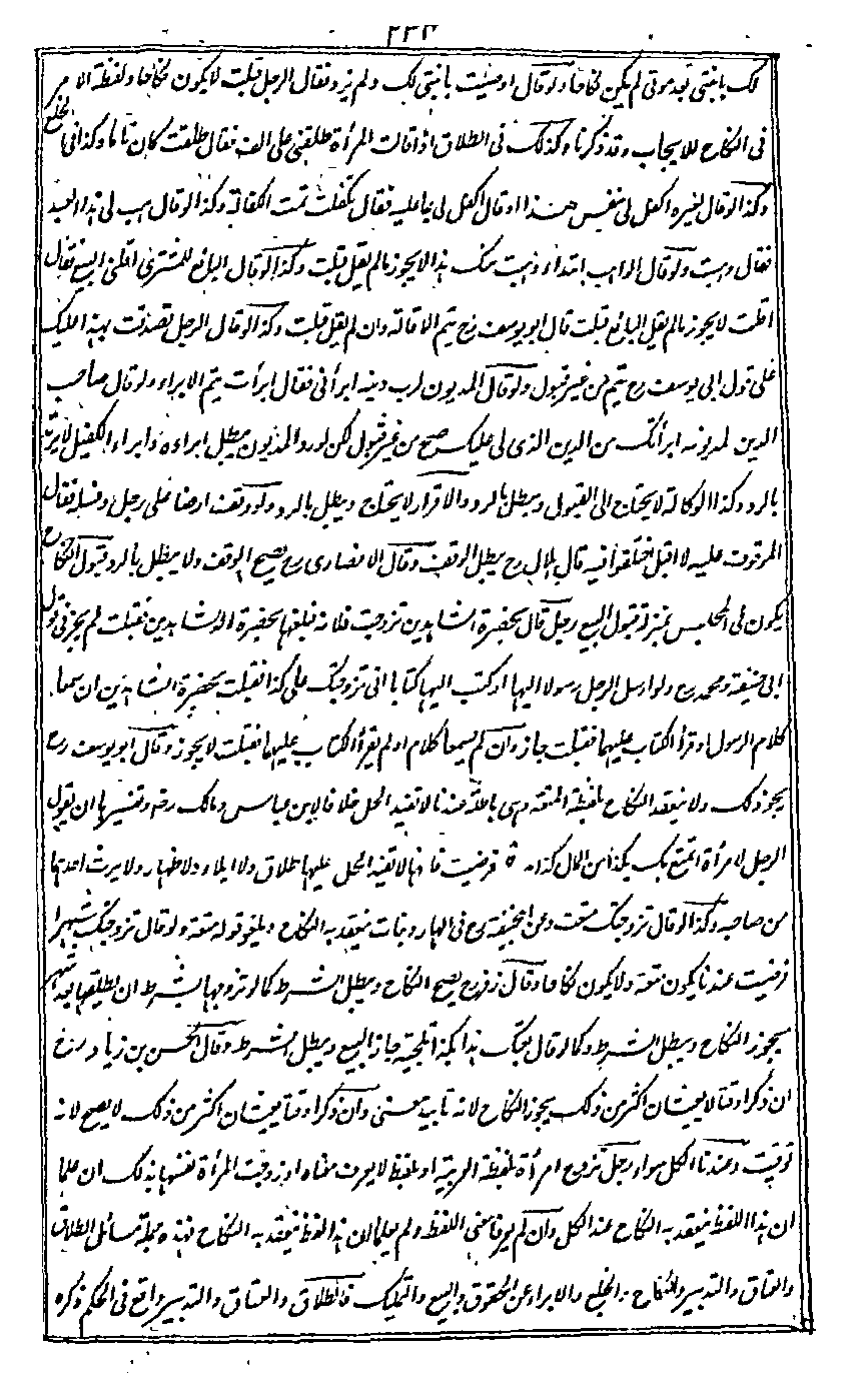 ٢٣٣
لك بابنتى بعد موتى لم يكن نكاحا ولو قال اوصيت بابنتى لك ولم يزد فقال الرجل قبلت لا يكون نكاحا ولفظة الامر
فى النكاح للايجاب وقد ذكرنا وكذلك فى الطلاق اذا قالت المرأة طلقنى على الف فقال طلقت كان تاما وكذا فى الخلع
وكذا لو قال لغيره اكفل لى بنفس هذا او قال اكفل لى بما عليه فقال كفلت تمت الكفالة وكذا لو قال هب لى هذا العبد
فقال وهبت ولو قال الواهب ابتداء وهبت منك هذا لا يجوز ما لم يقل قبلت وكذا لو قال البائع للمشترى اقلنى البيع فقال
اقلت لا يجوز ما لم يقل البائع قبلت قال ابو يوسف رح يتم الاقالة وان لم يقل قبلت وكذا لو قال الرجل تصدقت بهذا عليك
على قول ابى يوسف رح يتم من غير قبول ولو قال المديون لرب دينه ابرأنى فقال ابرأت يتم الابراء ولو قال صاحب
الدين لمديونه ابرأتك من الدين الذى لى عليك صح من غير قبول لكن لو رد المديون يبطل ابراءه وابراء الكفيل لا يرتد
بالرد وكذا الوكالة لا يحتاج الى القبول ويبطل بالرد والاقرار لا يحتاج ويبطل بالرد ولو وقف ارضا على رجل ونسله فقال
الموقوف عليه لا اقبل اختلفوا فيه قال هلال رح يبطل الوقف وقال الانصارى رح يصح الوقف ولا يبطل بالرد قبول النكاح
يكون فى المجلس بمنزلة قبول البيع رجل قال بحضرة الشاهدين تزوجت فلانة فبلغها بحضرة الشاهدين فقبلت لم يجز فى قول
ابى حنيفة ومحمد رح ولو ارسل الرجل رسولا اليها او كتب اليها كتابا انى تزوجتك على كذا فقبلت بحضرة الشاهدين ان سمعا
كلام الرسول او قرأ الكتاب عليهما فقبلت جاز وان لم يسمعا كلامه او لم يقرأ الكتاب عليهما فقبلت لا يجوز وقال ابو يوسف رح
يجوز ذلك ولا ينعقد النكاح بلفظة المتعة وهى باطلة عندنا لا تفيد الحل خلافا لابن عباس ومالك رض وتفسيرها ان يقول
الرجل لامرأة اتمتع بك بكذا من المال كذا مدة فرضيت فانها لا تفيد الحل عليها طلاق ولا ايلاء ولا ظهار ولا يرث احدهما
من صاحبه وكذا لو قال تزوجتك متعة وعن ابيحنيفة رح فى الهارونيات ينعقد به النكاح ويلغو قوله متعة ولو قال تزوجتك شهرا
فرضيت عندنا يكون متعة ولا يكون نكاحا وقال زفر رح يصح النكاح ويبطل الشرط كما لو تزوجها بشرط ان يطلقها بعد شهر
يجوز النكاح ويبطل الشرط وكما لو قال بعتك هذا بكذا تلجئة جاز البيع ويبطل الشرط وقال الحسن بن زياد رح
ان ذكرا وقتا لا يعيشان اكثر من ذلك يجوز النكاح لانه تأبيد معنى وان ذكرا وقتا يعيشان اكثر من ذلك لا يصح لانه
توقيت وعندنا الكل سواء رجل تزوج امرأة بلفظة العربية او بلفظ لا يعرف معناه او زوجت المرأة نفسها بذلك ان علما
ان هذا اللفظ ينعقد به النكاح عند الكل وان لم يعرفا معنى اللفظ ولم يعلما ان هذا لفظ ينعقد به النكاح فهذه جملة مسائل الطلاق
والعتاق والتدبير والنكاح والخلع والابراء عن الحقوق والبيع والتمليك فالطلاق والعتاق والتدبير واقع فى الحكم ذكره